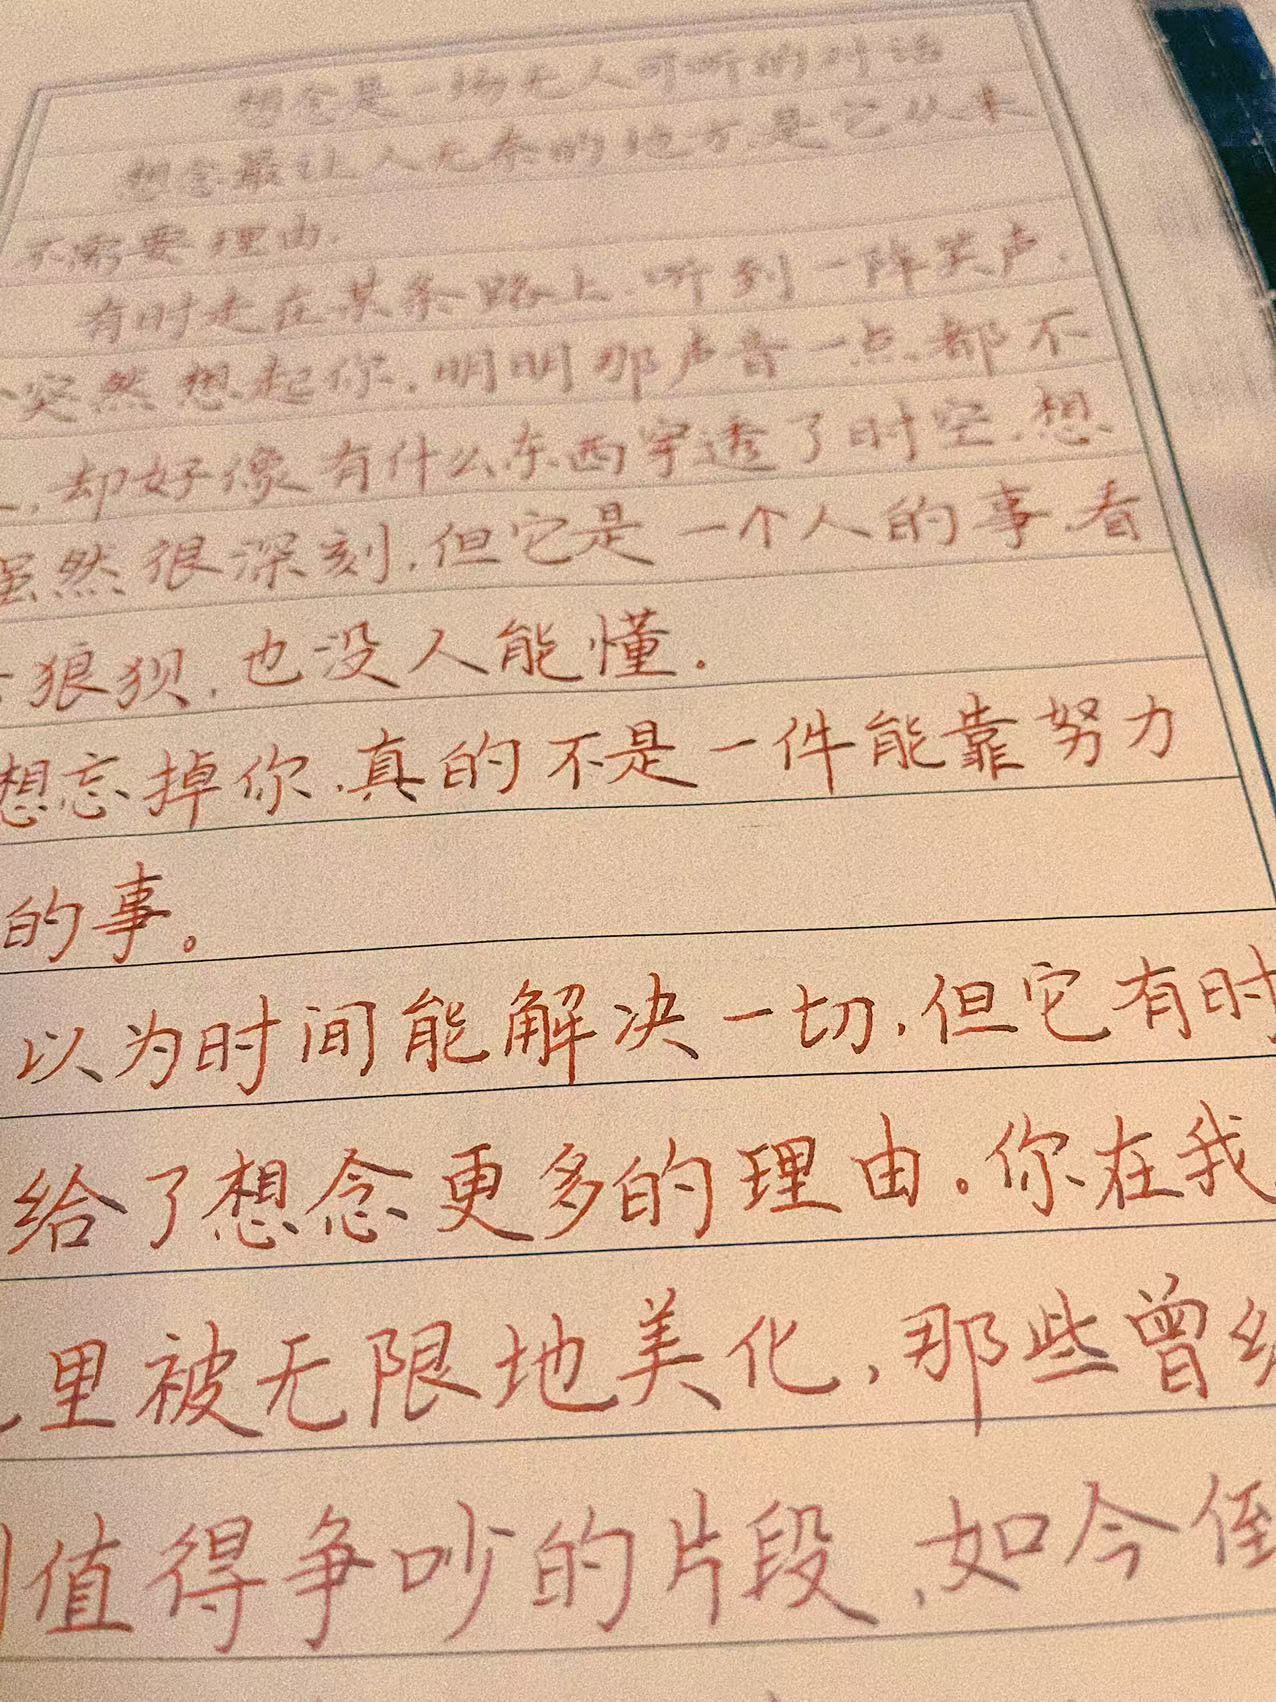 想念是一场无人可听的对话
想念最让人无奈的地方,是它从来
不需要理由.
有时走在某条路上,听到一阵笑声,
突然想起你,明明那声音一点都不
,却好像有什么东西穿透了时空.想
虽然很深刻,但它是一个人的事,看
狼狈,也没人能懂.
想忘掉你,真的不是一件能靠努力
的事。
以为时间能解决一切,但它有时
给了想念更多的理由。你在我
里被无限地美化,那些曾经
值得争吵的片段,如今